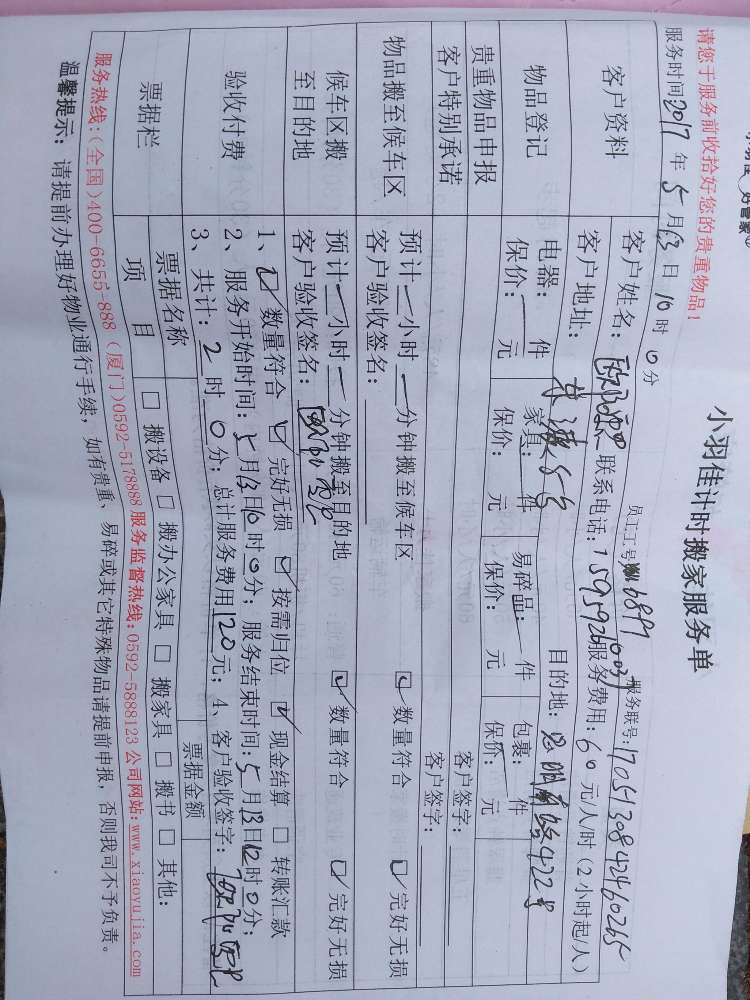 小羽佳计时搬家服务单
请您于服务前收拾好您的贵重物品!
员工工号 6897 服务联号:1705130842460265
服务时间2017年5月13日10时0分
客户资料
客户姓名: 联系电话:15959261003 服务费用:60元/人/时(2小时起/人)
客户地址: 55号 目的地:思明南路422号
物品登记
电器:一件 家具:一件 易碎品:一件 包裹:一件
保价: 元 保价: 元 保价: 元 保价: 元
贵重物品申报 客户签字:
客户特别承诺 客户签字:
物品搬至候车区
预计一小时一分钟搬至候车区 ☑数量符合 ☑完好无损
客户验收签名:
候车区搬至目的地
预计一小时一分钟搬至目的地 ☑数量符合 ☑完好无损
客户验收签名:
验收付费
1、☑数量符合 ☑完好无损 ☑按需归位 ☑现金结算 □转账汇款
2、服务开始时间:5月13日10时0分;服务结束时间:5月13日12时0分;
3、共计:2时0分;总计服务费用120元;4、客户验收签字:
票据栏
票据名称 票据金额
项目 □搬设备 □搬办公家具 □搬家具 □搬书 □其他:
服务热线:(全国)400-6655-888 (厦门)0592-5178888 服务监督热线:0592-5888123 公司网站:www.xiaoyujia.com
温馨提示:请提前办理好物业通行手续,如有贵重、易碎或其它特殊物品请提前申报,否则我司不予负责。